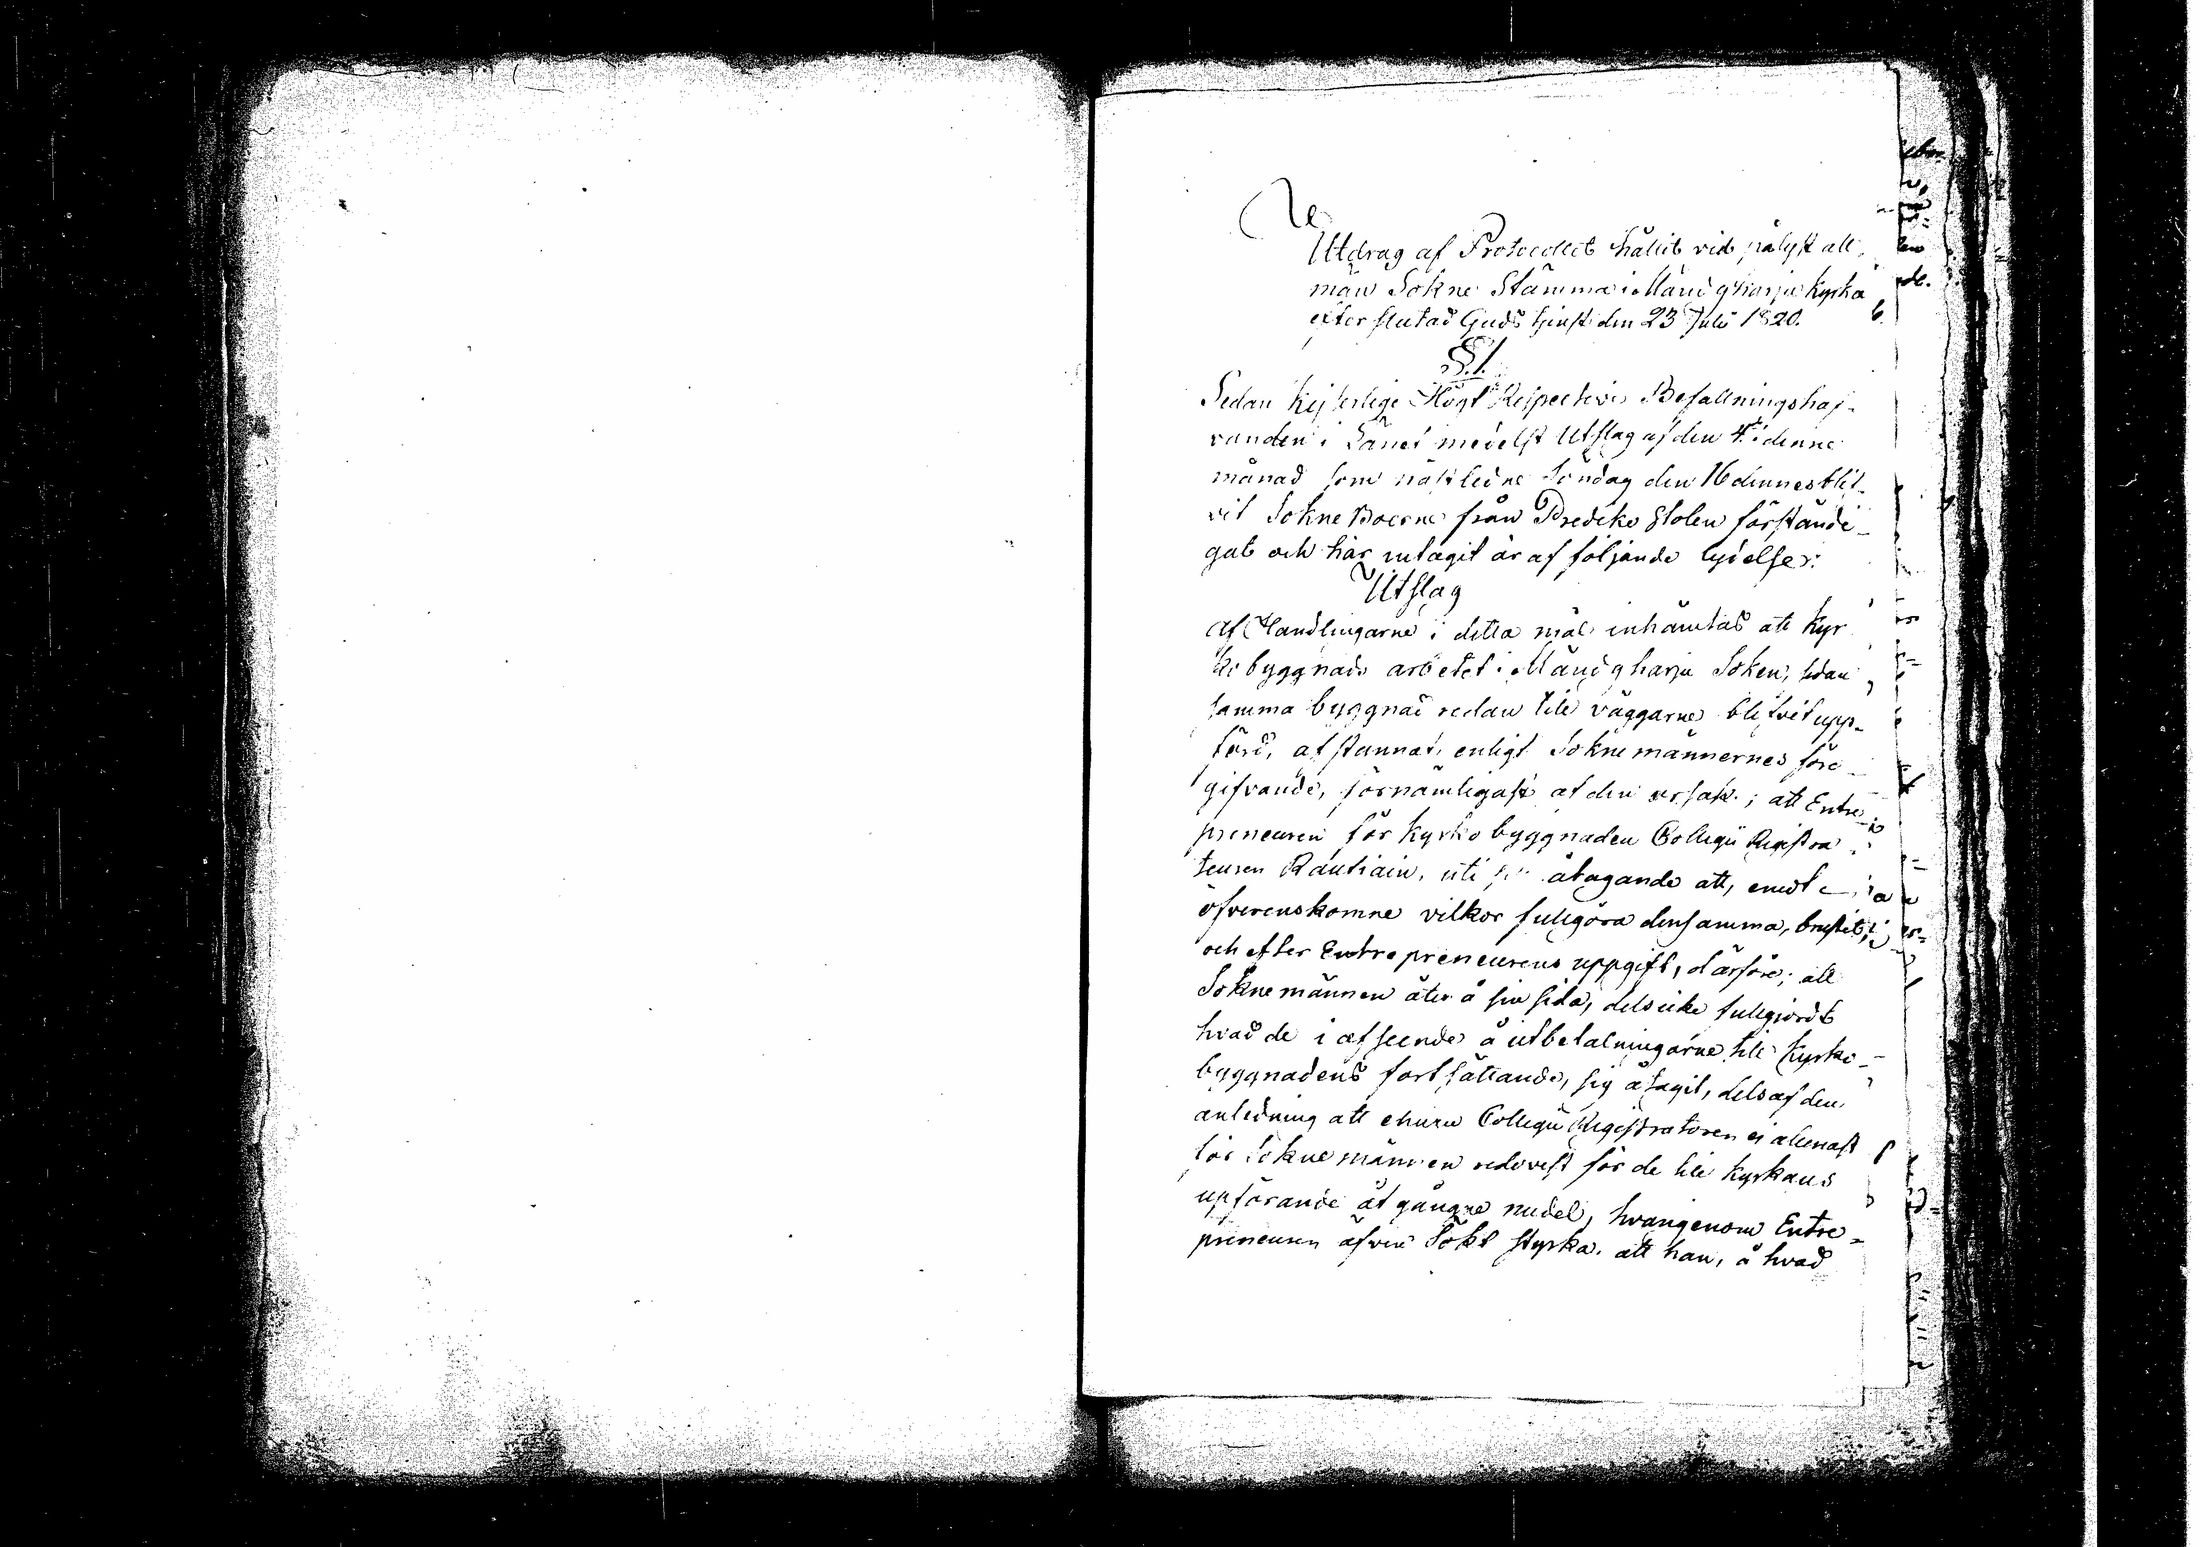 Utdrag af Protocollet hållit vid pålyst all-
män Sokne Stämma i Mändyharju kyrka
efter slutad Guds tjenst den 23 Julii 1820.
§. 1.
Sedan Kejserlige Högt Respective Befallningshaf-
vanden i Länet medelst Utslag af den 4 i denne
månad som nästledne Söndag den 16 dennes blif-
vit Sokne Boerne från Prediko Stolen förständi-
gat och här intagit är af följande lydelse:
Utslag
Af Handlingarne i detta mål inhämtas att Kyr
ko byggnads arbetet i Mändyharju Soken, sedan
samma byggnad redan till väggarne blifvit upp-
förd, afstannat, enligt Soknemännernes före-
gifvande, förnämligast af den orsak; att Entre-
preneuren för kyrko byggnaden Collegii Registra
teuren Rautiain, uti åtagande att, emot
öfverenskomne vilkor fullgöra densamma, brustit,
och efter Entrepreneurens uppgift, därföre; att
Soknemännen åter å sin sida, dels icke fullgjordt
hvad de i afseende å utbetalningarne till Kyrko-
byggnadens fortsättande, sig åtagit, dels af den
anledning att ehuru Collegii Registratoren ej allenast
för Soknemännen redovist för de till kyrkans
upförande åtgångne medel, hvarigenom Entre-
preneuren äfven sökt styrka att han, å hvad